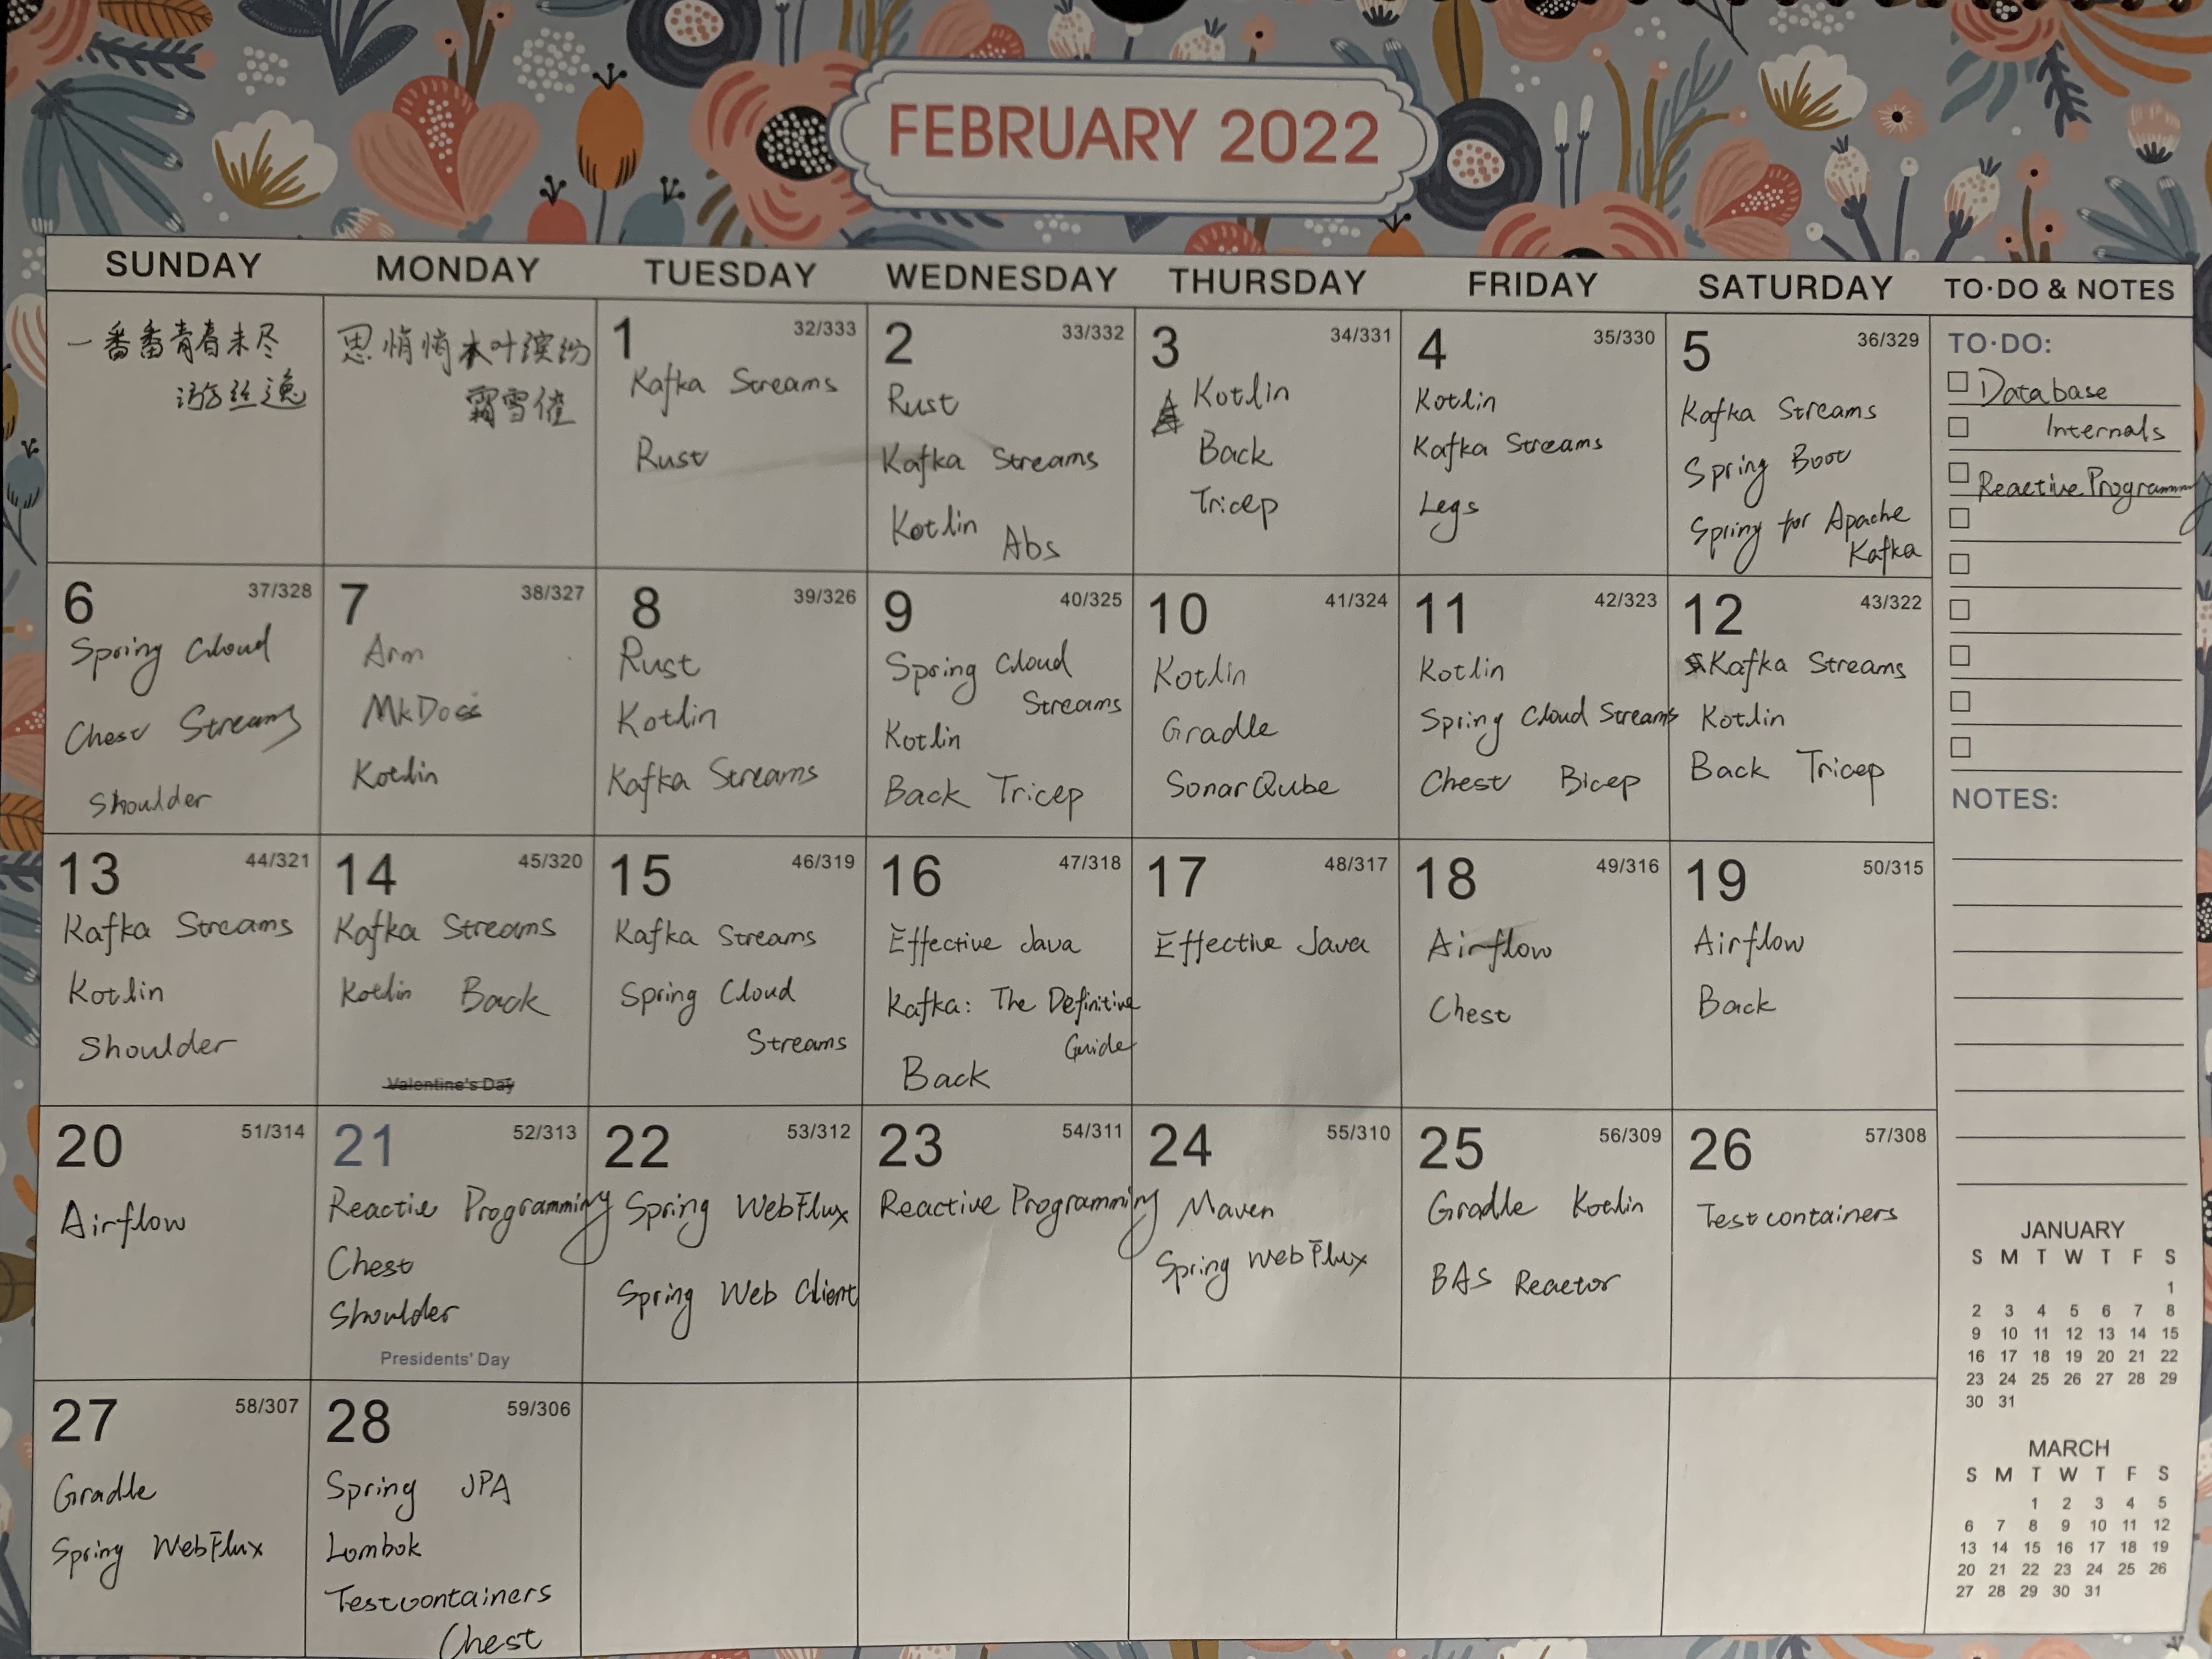 FEBRUARY 2022
SUNDAY MONDAY TUESDAY WEDNESDAY THURSDAY FRIDAY SATURDAY TO·DO & NOTES
一番番青春未尽
游丝逸
思悄悄木叶缤纷
霜雪催
1 32/333
Kafka Streams
Rust
2 33/332
Rust
Kafka Streams
Kotlin Abs
3 34/331
Kotlin
Back
Tricep
4 35/330
Kotlin
Kafka Streams
Legs
5 36/329
Kafka Streams
Spring Boot
Spring for Apache
Kafka
6 37/328
Spring Cloud
Chest Streams
Shoulder
7 38/327
Arm
MkDocs
Kotlin
8 39/326
Rust
Kotlin
Kafka Streams
9 40/325
Spring Cloud
Streams
Kotlin
Back Tricep
10 41/324
Kotlin
Gradle
SonarQube
11 42/323
Kotlin
Spring Cloud Streams
Chest Bicep
12 43/322
Kafka Streams
Kotlin
Back Tricep
13 44/321
Kafka Streams
Kotlin
Shoulder
14 45/320
Kafka Streams
Kotlin Back
Valentine's Day
15 46/319
Kafka Streams
Spring Cloud
Streams
16 47/318
Effective Java
Kafka: The Definitive
Guide
Back
17 48/317
Effective Java
18 49/316
Airflow
Chest
19 50/315
Airflow
Back
20 51/314
Airflow
21 52/313
Reactie Programming
Chest
Shoulder
Presidents' Day
22 53/312
Spring WebFlux
Spring Web Client
23 54/311
Reactive Programming
24 55/310
Maven
Spring WebFlux
25 56/309
Gradle Kotlin
BAS Reactor
26 57/308
Testcontainers
27 58/307
Gradle
Spring WebFlux
28 59/306
Spring JPA
Lombok
Testcontainers
Chest
TO·DO:
Database
Internals
Reactive Programming
NOTES:
JANUARY
S M T W T F S
1
2 3 4 5 6 7 8
9 10 11 12 13 14 15
16 17 18 19 20 21 22
23 24 25 26 27 28 29
30 31
MARCH
S M T W T F S
1 2 3 4 5
6 7 8 9 10 11 12
13 14 15 16 17 18 19
20 21 22 23 24 25 26
27 28 29 30 31